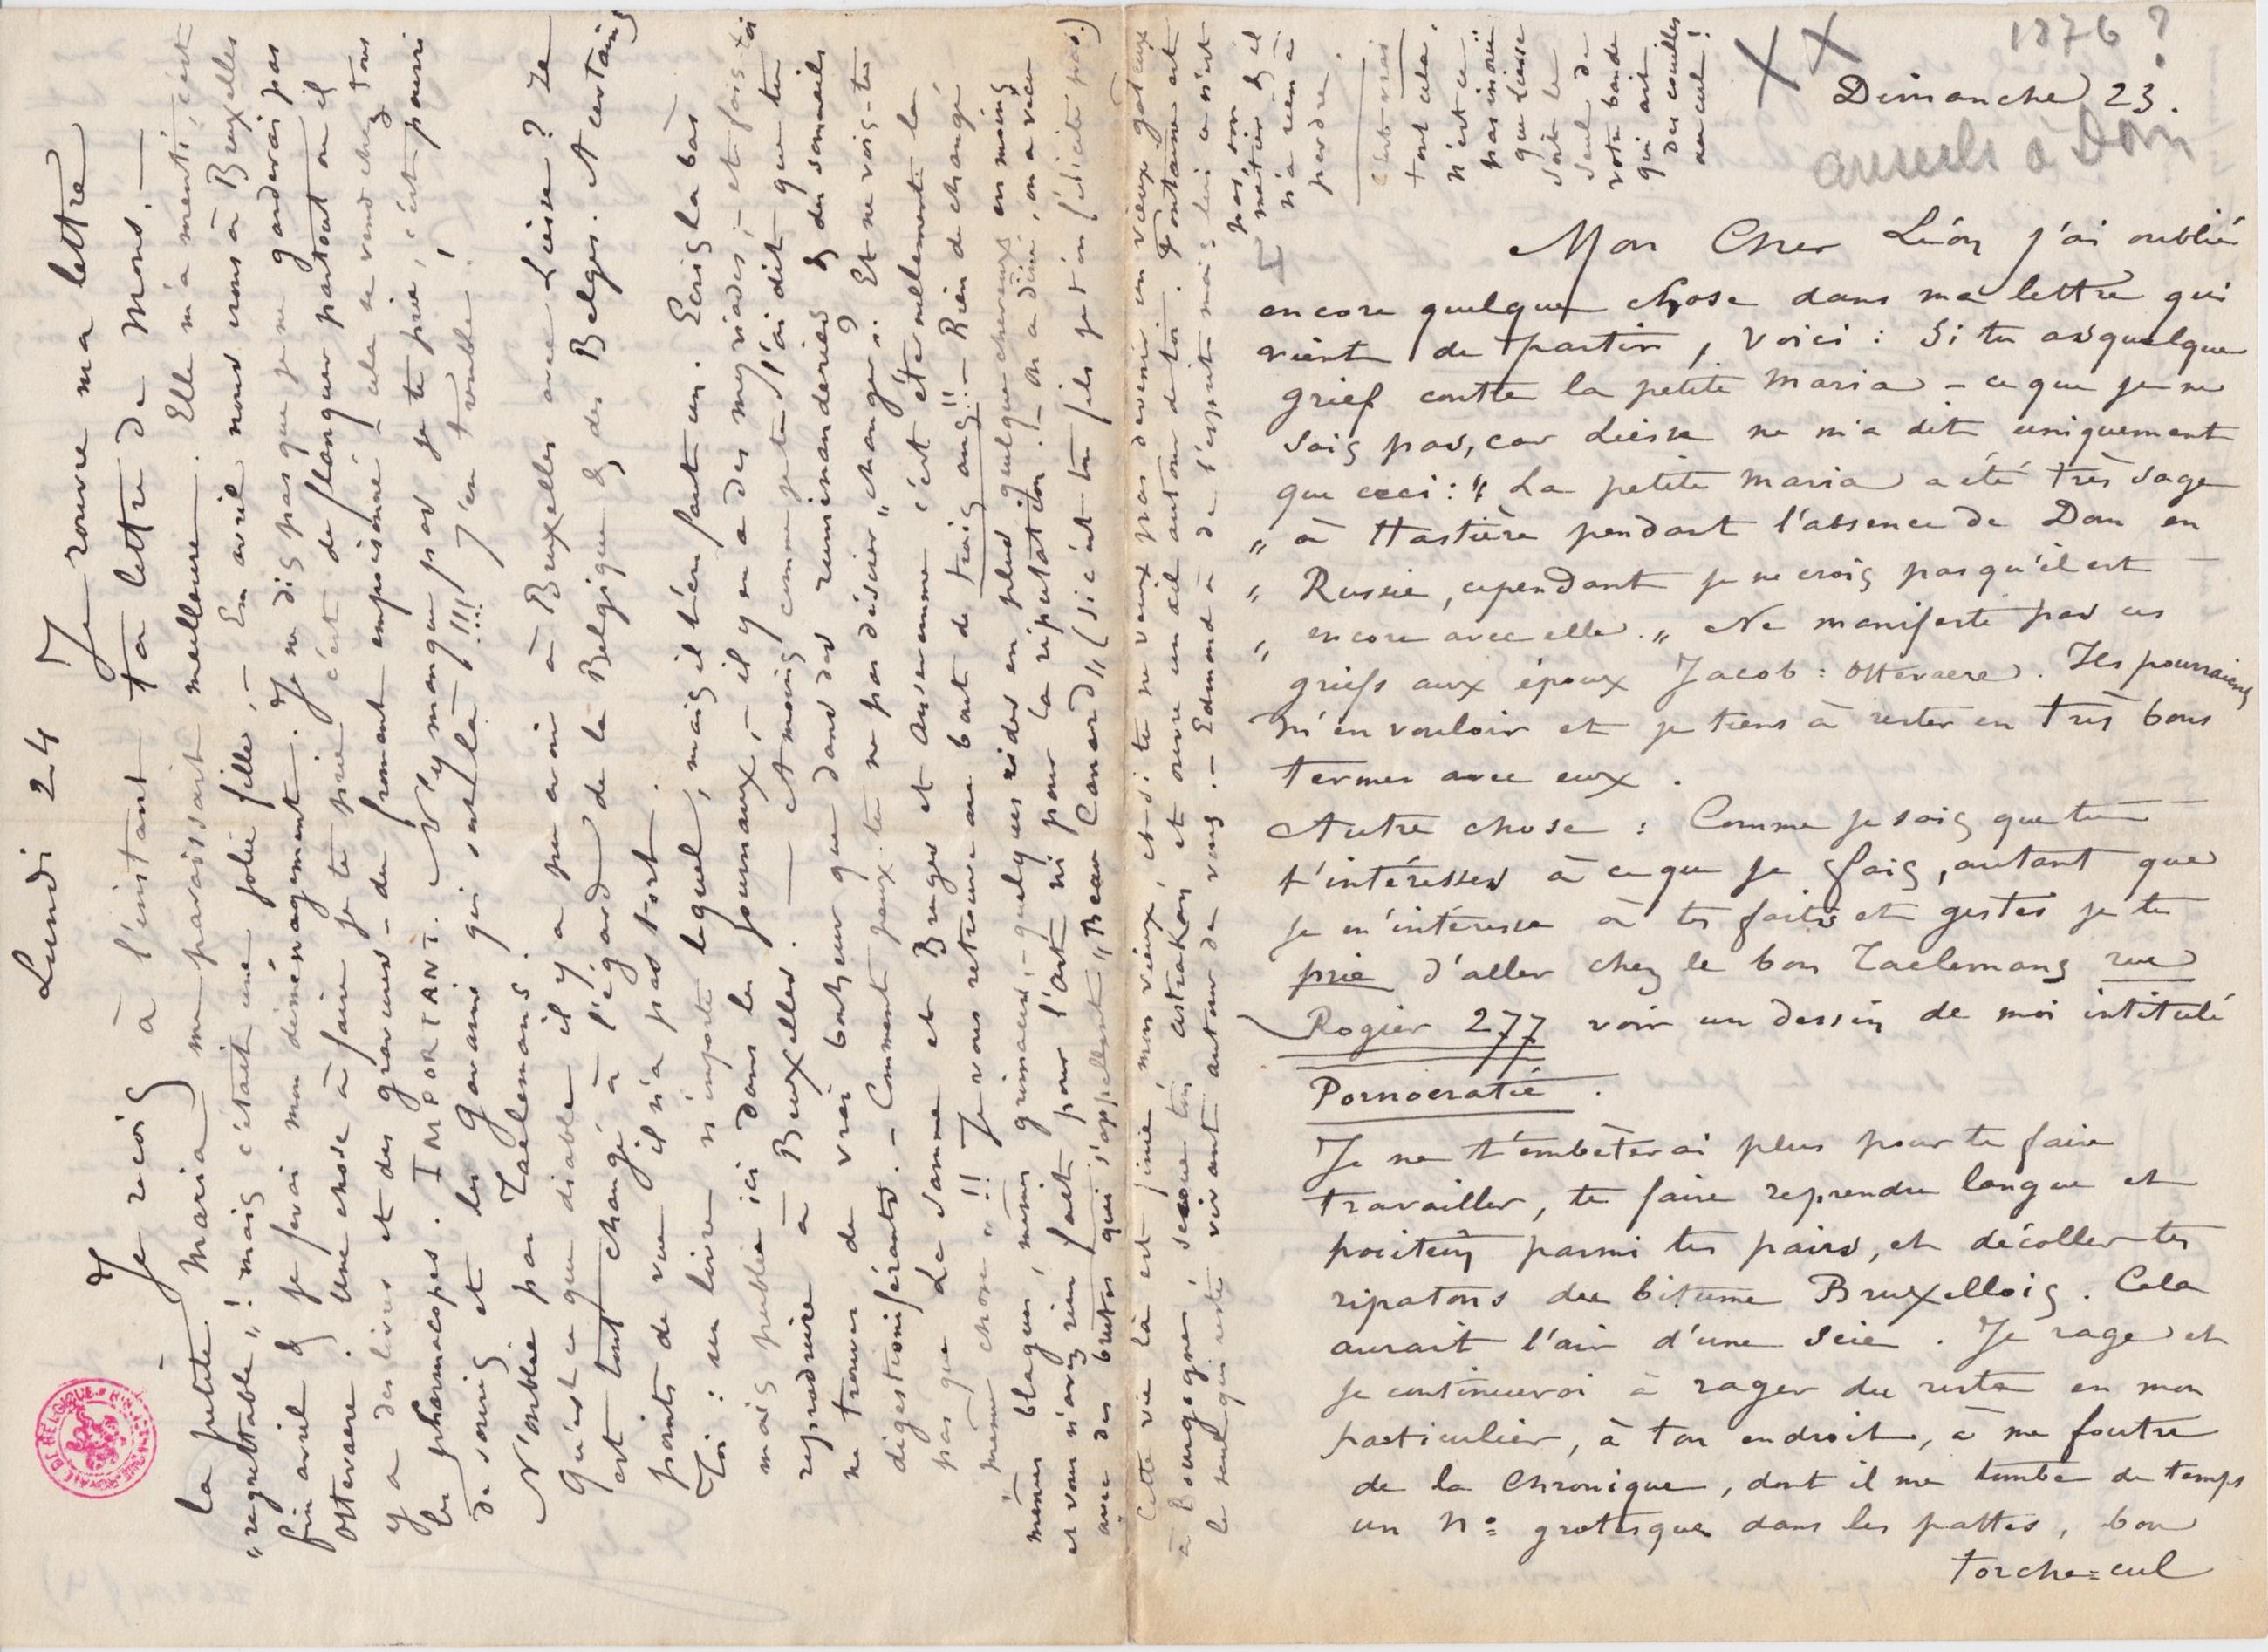 1876 ?
Dimanche 23.
conseils à Dom
Mon Cher Léon j'ai oublié
encore quelque chose dans ma lettre qui
vient de partir, voici : Si tu as quelque
grief contre la petite Maria – ce que je ne
sais pas, car Liesse ne m'a dit uniquement
que ceci : " La petite Maria a été très sage
" à Hastière pendant l'absence de Dom en
" Russie, cependant je ne crois pas qu'il est
" encore avec elle. " Ne manifeste pas ces
griefs aux époux Jacob = Ottevaere. Ils pourraient
m'en vouloir et je tiens à rester en très bons
termes avec eux.
Autre chose : Comme je sais que tu
t'intéresses à ce que je fais, autant que
je m'intéresse à tes faits et gestes je te
prie d'aller chez le bon Taelemans rue
Rogier 277 voir un dessin de moi intitulé
Pornocratie.
Je ne t'embèterai plus pour te faire
travailler, te faire reprendre langue et
position parmi tes pairs, et décoller tes
ripatons du bitume Bruxellois. Cela
aurait l'air d'une Scie. Je rage et
je continuerai à rager du reste en mon
particulier, à ton endroit, à me foutre
de la Chronique, dont il me tombe de temps
un No grotesque dans les pattes, bon
torche=cul
Lundi 24 Je rouvre ma lettre
Je reçois à l'instant ta lettre de Mons. –
la petite Maria me paraissait meilleure. Elle m'a menti, c'est
"regrettable"! mais c'était une jolie fille, – En avril nous irons à Bruxelles
fin avril & je ferai mon déménagement. Je ne dis pas que je ne garderai pas
Ottevaere. Une chose à faire je te prie c'est de flanquer partout où il
y a des livres et des gravures – du froment empoisonné – cela se vend chez tous
les pharmacopes. IMPORTANT. N'y manque pas je te prie, c'est pourri
de souris et les Gavarnis qui sont là !!! J'en tremble !
N'oublie pas Taelemans.
Qu'est ce que diable il y a pu avoir à Bruxelles avec Liesse ? Je
est tout changé à l'égard de la Belgique & des Belges. A certains
points de vue il n'a pas tort.
Toi : un livre n'importe lequel, mais il t'en faut un. Ecris là bas
mais publie ici dans les journaux, – il y en a des myriades, – et fais-toi
reproduire à Bruxelles. — A moins comme je te l'ai dit que tu
ne trouves de vrai bonheur que dans des ruminanderies & des sommeils
digestioniférants. – Comment peux-tu ne pas désirer "changer"? Et ne vois-tu
pas que La Samme et Bruges et Auseremme c'est éternellement la
même chose"!! Je vous retrouve au bout de trois ans !! – Rien de changé
mêmes blagues, mêmes grimaces, – quelques rides en plus quelques cheveux en moins
et vous n'avez rien fait pour l'art ni pour la réputation. – On a diné, on a vécu
avec des brutes qui s'appellent "Beau Canard" (si c'est ton fils je t'en félicite pas.)
Cette vie là est finie, mon vieux, et si tu ne veux pas devenir un vieux gateux
à Bourgogne, secoue ton astrakan, et ouvre un œil autour de toi. Fontaine est
le seul qui reste vivant autour de vous. – Edmond a de l'esprit mais lui ce n'est
pas son
métier & il
n'a rien à
perdre.
C'est vrai
tout cela,
n'est ce
pas inouï
que Liesse
soit le
seul de
votre bande
qui ait
des couilles
au cul !